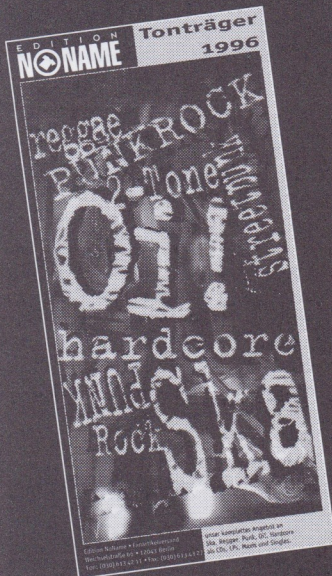 EDITION
NONAME
Tonträger
1996
reggae
PUNKROCK
2-Tone
streetmusik
Oi!
hardcore
PUNK
Rock
SKA
Edition NoName • Fanartikelversand
Weichselstraße 66 • 12043 Berlin
unser komplettes Angebot an
Ska, Reggae, Punk, Oi!, Hardcore
als CDs, LPs, Maxis und Singles.